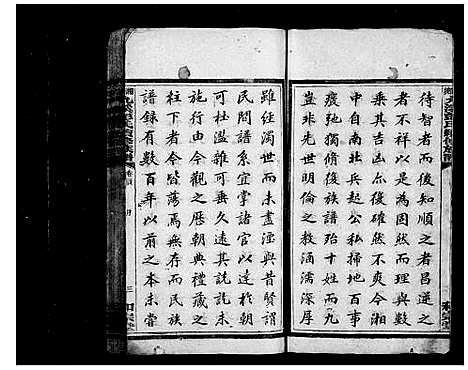 待智者而後知順之者昌逆之
者不祥以為固然而理與數
乘其吉凶亦後確然不爽今湘
中自南北兵起公私掃地百事
廢弛獨脩後族譜殆十姓而九
豈非先世明倫之教涵濡深厚
雖經濁世而未盡湮與昔賢謂
民間譜系宜掌諸官以達於朝
可杜濫雜可久遠其說託未
施行由今觀之歷朝典禮藏之
柱下者今皆蕩焉無存而民族
譜錄有數百年以前之本未嘗
卷首
三